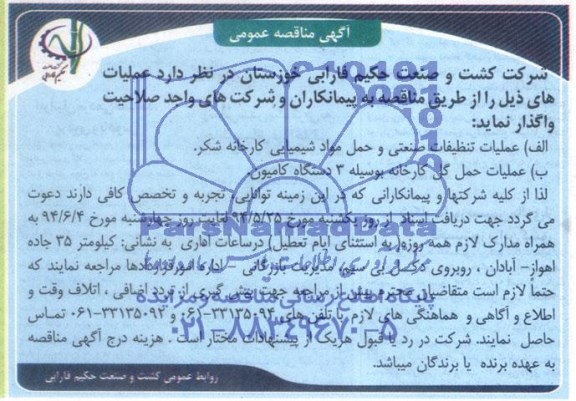 آگهی مناقصه عمومی
شرکت کشت و صنعت حکیم فارابی خوزستان در نظر دارد عملیات
های ذیل را از طریق مناقصه به پیمانکاران و شرکت های واجد صلاحیت
واگذار نماید:
الف) عملیات تنظیفات صنعتی و حمل مواد شیمیایی کارخانه شکر.
ب) عملیات حمل گل کارخانه بوسیله ۳ دستگاه کامیون.
لذا از کلیه شرکتها و پیمانکارانی که در این زمینه توانایی، تجربه و تخصص کافی دارند دعوت
می گردد جهت دریافت اسناد از روز یکشنبه مورخ ۹۴/۵/۲۵ لغایت روز چهارشنبه مورخ ۹۴/۶/۴ به
همراه مدارک لازم همه روزه( به استثنای ایام تعطیل) درساعات اداری به نشانی: کیلومتر ۳۵ جاده
اهواز- آبادان ، روبروی دکل بی سیم، مدیریت بازرگانی - اداره امور قراردادها مراجعه نمایند که
حتماً لازم است متقاضیان محترم پیش از مراجعه جهت پیش گیری از تردد اضافی ، اتلاف وقت و
اطلاع و آگاهی و هماهنگی های لازم با تلفن های ۳۳۱۳۵۰۹۴-۰۶۱ و ۳۳۱۳۵۰۹۲-۰۶۱ تماس
حاصل نمایند. شرکت در رد یا قبول هریک از پیشنهادات مختار است . هزینه درج آگهی مناقصه
به عهده برنده یا برندگان میباشد.
روابط عمومی کشت و صنعت حکیم فارابی
ParsNamadData
پایگاه اطلاع رسانی مناقصه و مزایده
۰۲۱-۸۸۳۴۹۶۷۰-۵